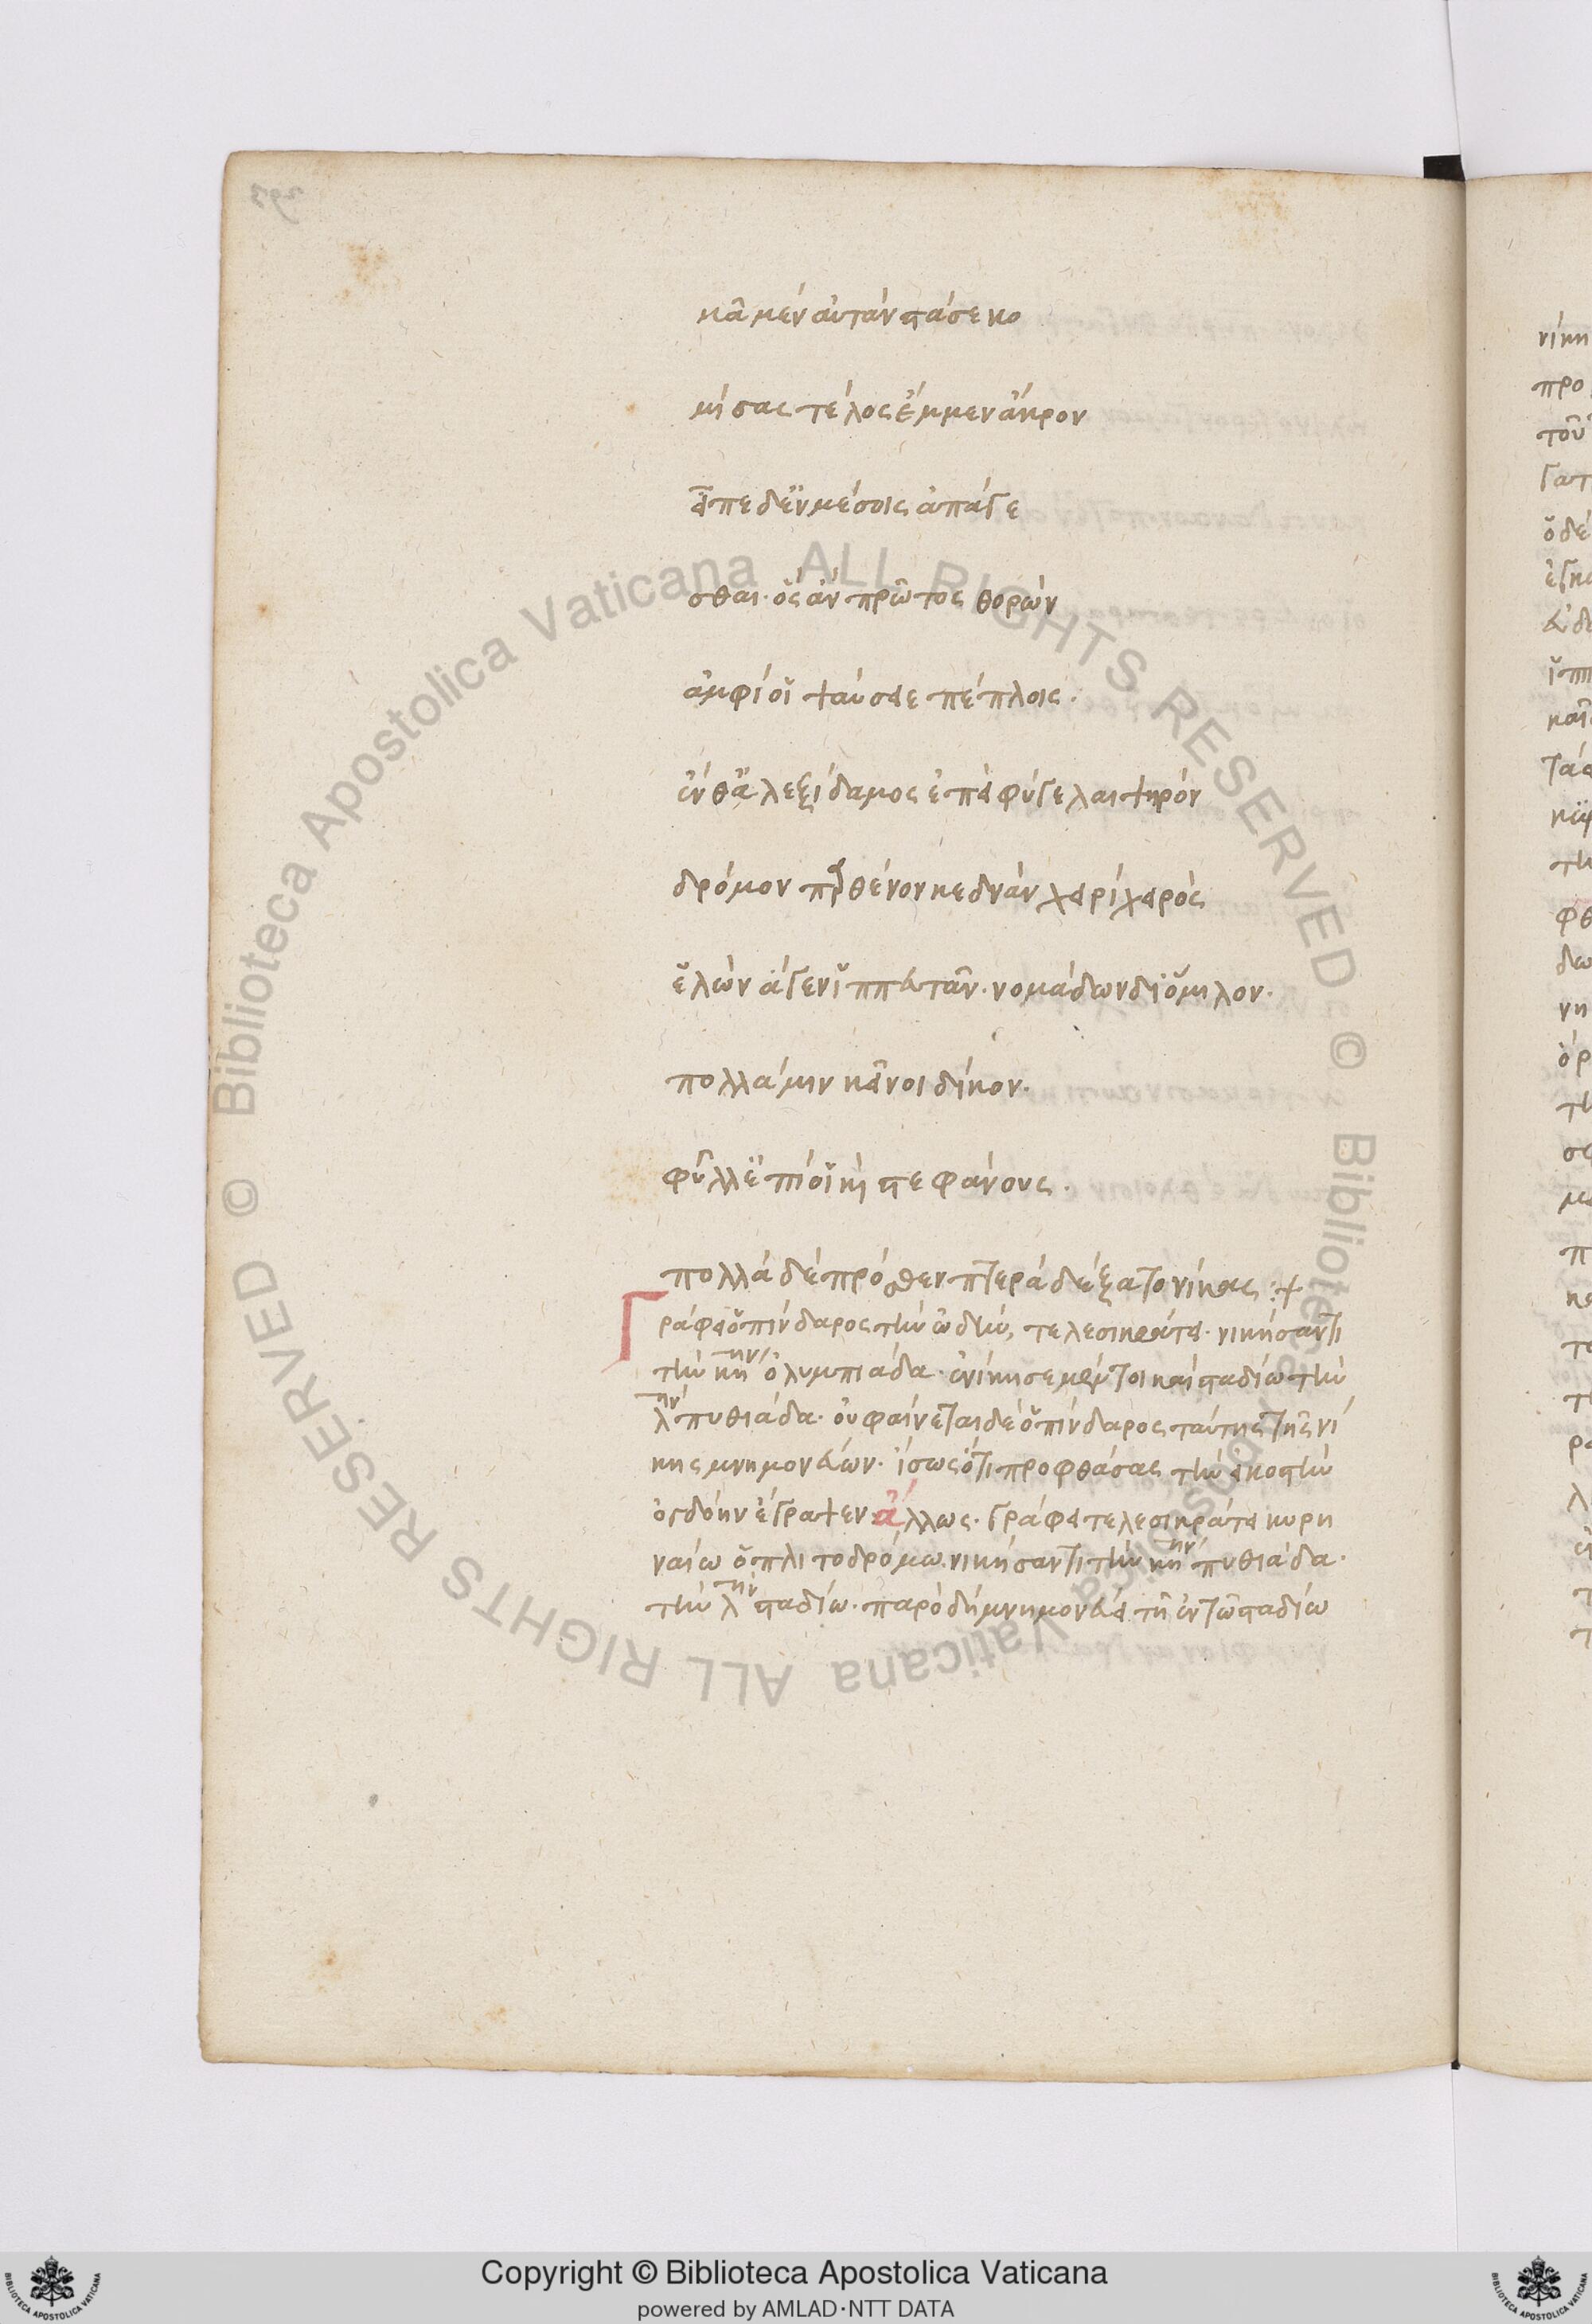 κᾶ μὲν αὐτὰν στᾶσε κο
μίσας τέλος ἔμμεν ἄκρον
εἶπε δ' ἐν μέσοις ἀπάγε
σθαι. ὃς ἂν πρῶτος θορὼν
ἀμφί οἱ ψαύσειε πέπλοις.
ἔνθ' ἀλεξίδαμος ἐπεὶ φύγε λαιψηρὸν
δρόμον παρθένον κεδνὰν χερὶ χειρὸς
ἑλὼν ἄγεν ἱππευτᾶν. νομάδων δι' ὅμιλον.
πολλὰ μιν κεῖνοι δίκον.
φύλλ' ἔπι οἱ κὴ στεφάνους.
πολλὰ δὲ πρόσθεν πτερὰ δέξατο νίκας :+
Γράφει ὁ πίνδαρος τὴν ὠδὴν, τελεσικράτει. νικήσαντι
τὴν κη ην ὀλυμπιάδα. ἐνίκησε μέντοι καὶ σταδίω τὴν
λ ην πυθιάδα. οὐ φαίνεται δὲ ὁ πίνδαρος ταύτης τῆς νί
κης μνημονεύων. ἴσως ὅτι προφθάσας τὴν εἰκοστὴν
ὀγδόην ἔγραψεν. ἄλλως. γράφει τελεσικράτει κυρη
ναίω ὁπλιτοδρόμω. νικήσαντι τὴν κη ην πυθιάδα.
τὴν λ ην σταδίω. παρὸ δὴ μνημονεύει τῆ ἐν τῶ σταδίω
Copyright © Biblioteca Apostolica Vaticana
powered by AMLAD·NTT DATA
© Biblioteca Apostolica Vaticana ALL RIGHTS RESERVED © Biblioteca Apostolica Vaticana ALL RIGHTS RESERVED